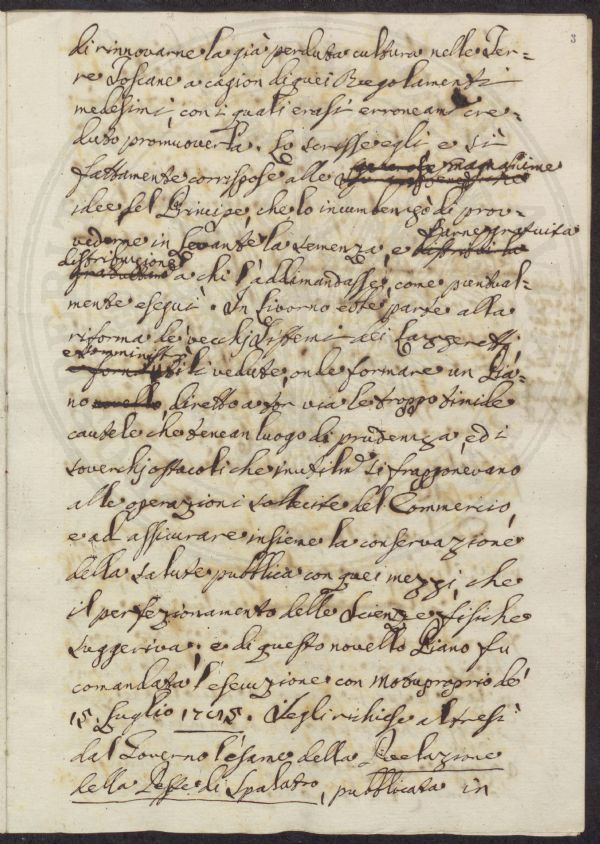 3
di rinnovarne la già perduta cultura nelle Ter=
re Toscane a cagion di quei Regolamenti
medesimi, con i quali erasi erroneam. cre=
duto promuoverla. Lo scrisse egli e sì
fattamente corrispose alle magnanime
idee del Principe, che lo incumbenzò di prov=
vederne in Levante la semenza, e farne gratuita
distribuzione a chi l'addimandasse, come puntual=
mente eseguì. In Livorno ebbe parte alla
riforma de' vecchj Sistemi dei Lazzeretti
e somministrò vedute, onde formare un Pia=
no novello, diretto a tor via le troppo timide
cautele che tenean luogo di prudenza, ed i
soverchj ostacoli che inutilm. si frapponevano
alle operazioni sollecite del Commercio,
e ad assicurare insieme la conservazione
della salute pubblica con quei mezzi, che
il perfezionamento delle Scienze fisiche
suggeriva. e di questo novello Piano fu
comandata l'esecuzione con Motuproprio de'
15. Luglio. Segli richiese altresì
dal Governo l'esame della Relazione
della Peste di Spalatro, pubblicata in